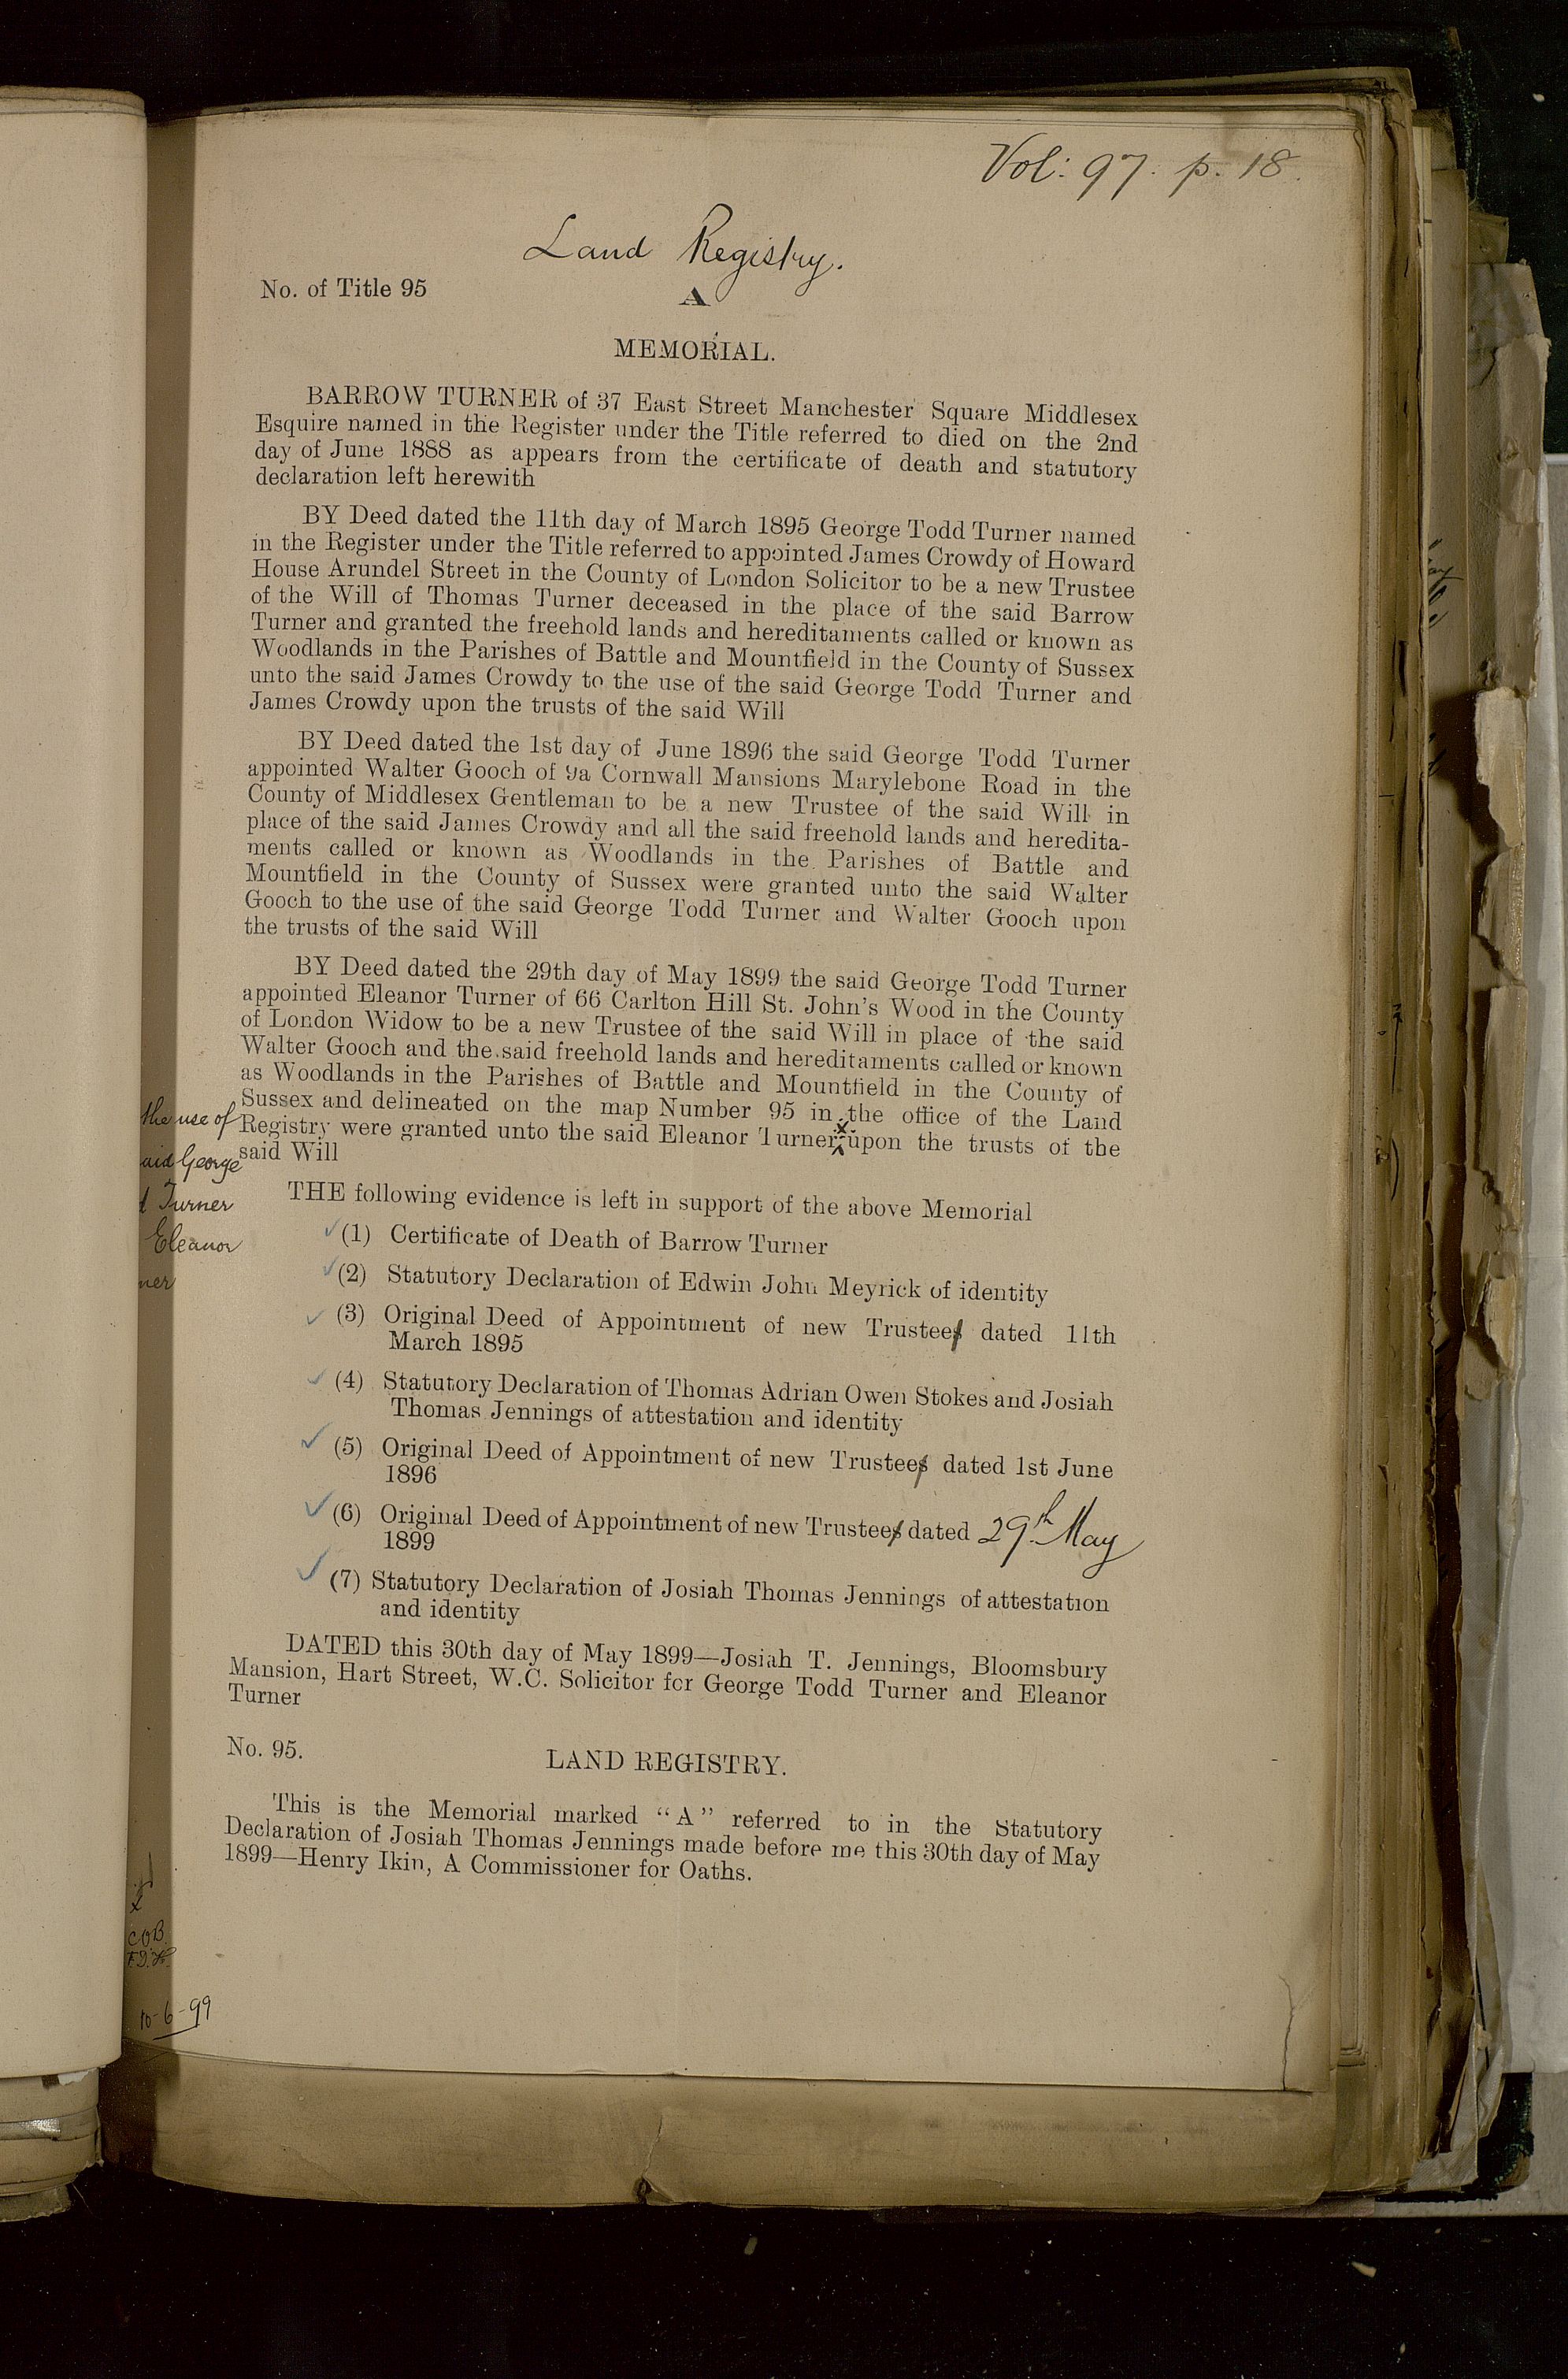 Vol: 97. p. 18.
Land Registry.
No. of Title 95
A
MEMORIAL.
BARROW TURNER of 37 East Street Manchester Square Middlesex
Esquire named in the Register under the Title referred to died on the 2nd
day of June 1888 as appears from the certificate of death and statutory
declaration left herewith
BY Deed dated the 11th day of March 1895 George Todd Turner named
in the Register under the Title referred to appointed James Crowdy of Howard
House Arundel Street in the County of London Solicitor to be a new Trustee
of the Will of Thomas Turner deceased in the place of the said Barrow
Turner and granted the freehold lands and hereditaments called or known as
Woodlands in the Parishes of Battle and Mountfield in the County of Sussex
unto the said James Crowdy to the use of the said George Todd Turner and
James Crowdy upon the trusts of the said Will
BY Deed dated the 1st day of June 1896 the said George Todd Turner
appointed Walter Gooch of 9a Cornwall Mansions Marylebone Road in the
County of Middlesex Gentleman to be a new Trustee of the said Will in
place of the said James Crowdy and all the said freehold lands and heredita-
ments called or known as Woodlands in the Parishes of Battle and
Mountfield in the County of Sussex were granted unto the said Walter
Gooch to the use of the said George Todd Turner and Walter Gooch upon
the trusts of the said Will
BY Deed dated the 29th day of May 1899 the said George Todd Turner
appointed Eleanor Turner of 66 Carlton Hill St. John's Wood in the County
of London Widow to be a new Trustee of the said Will in place of the said
Walter Gooch and the said freehold lands and hereditaments called or known
as Woodlands in the Parishes of Battle and Mountfield in the County of
Sussex and delineated on the map Number 95 in the office of the Land
Registry were granted unto the said Eleanor Turner x upon the trusts of the
said Will
the use of
aid George
d Turner
Eleanor
ner
THE following evidence is left in support of the above Memorial
(1) Certificate of Death of Barrow Turner
(2) Statutory Declaration of Edwin John Meyrick of identity
(3) Original Deed of Appointment of new Trustees dated 11th
March 1895
(4) Statutory Declaration of Thomas Adrian Owen Stokes and Josiah
Thomas Jennings of attestation and identity
(5) Original Deed of Appointment of new Trustees dated 1st June
1896
(6) Original Deed of Appointment of new Trustees dated 29th May
1899
(7) Statutory Declaration of Josiah Thomas Jennings of attestation
and identity
DATED this 30th day of May 1899—Josiah T. Jennings, Bloomsbury
Mansion, Hart Street, W.C. Solicitor for George Todd Turner and Eleanor
Turner
No. 95.
LAND REGISTRY.
This is the Memorial marked "A" referred to in the Statutory
Declaration of Josiah Thomas Jennings made before me this 30th day of May
1899—Henry Ikin, A Commissioner for Oaths.
COB.
10-6-99